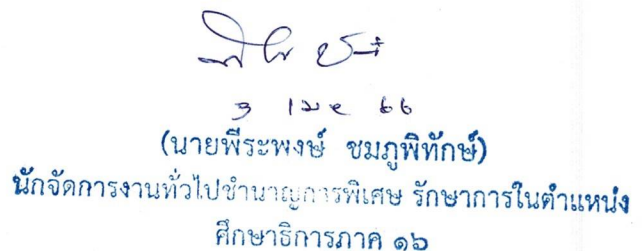 3 เมย 66
(นายพีระพงษ์ ชมภูพิทักษ์)
นักจัดการงานทั่วไปชำนาญการพิเศษ รักษาการในตำแหน่ง
ศึกษาธิการภาค ๑๖